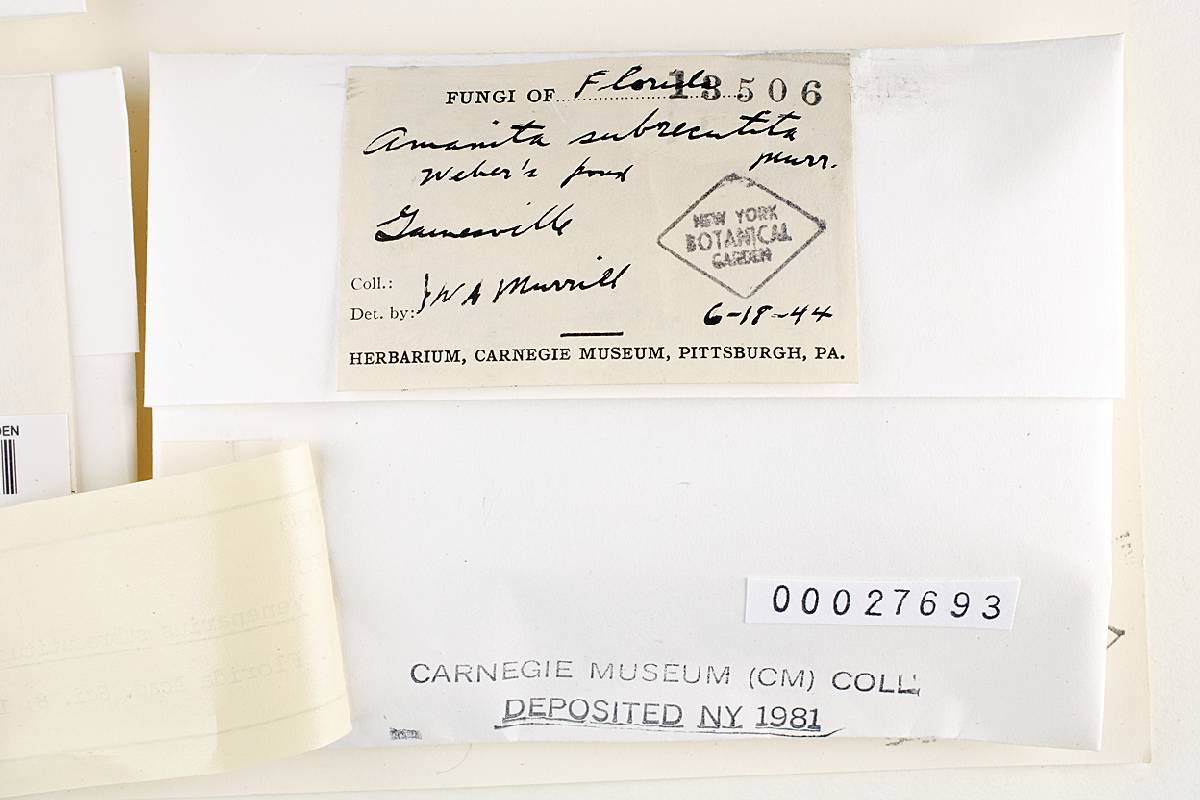 FUNGI OF Florida 13506
Amanita subrecutita
Murr.
Weber's pond
Gainesville
NEW YORK
BOTANICAL
GARDEN
Coll.:
Det. by: } W A Murrill
6-18-44
HERBARIUM, CARNEGIE MUSEUM, PITTSBURGH, PA.
DEN
00027693
CARNEGIE MUSEUM (CM) COLL.
DEPOSITED NY 1981